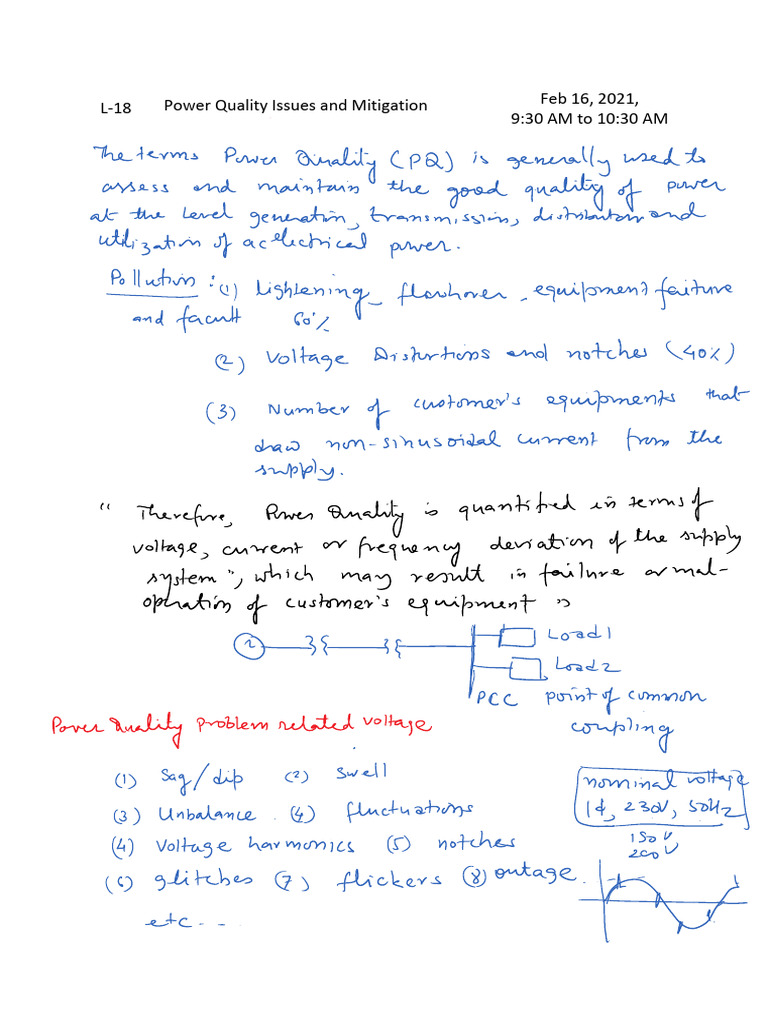 L-18 Power Quality Issues and Mitigation Feb 16, 2021,
9:30 AM to 10:30 AM
The terms Power Quality (PQ) is generally used to
assess and maintain the good quality of power
at the level generation, transmission, distribution and
utilization of ac electrical power.
Pollution : (1) lightening, flashover, equipment failure
and facult 60%
(2) Voltage Distortions and notches (40%)
(3) Number of customer's equipments that
draw non-sinusoidal current from the
supply.
" Therefore, Power Quality is quantified in terms of
voltage, current or frequency deviation of the supply
system", which may result in failure or mal-
operation of customer's equipment "
Load 1
Load 2
PCC point of common
coupling
Power Quality problem related voltage
(1) Sag/dip (2) Swell
(3) Unbalance (4) fluctuations
(4) Voltage harmonics (5) notches
(6) glitches (7) flickers (8) outage.
etc...
nominal voltage
1ϕ, 230V, 50Hz
150V
200V